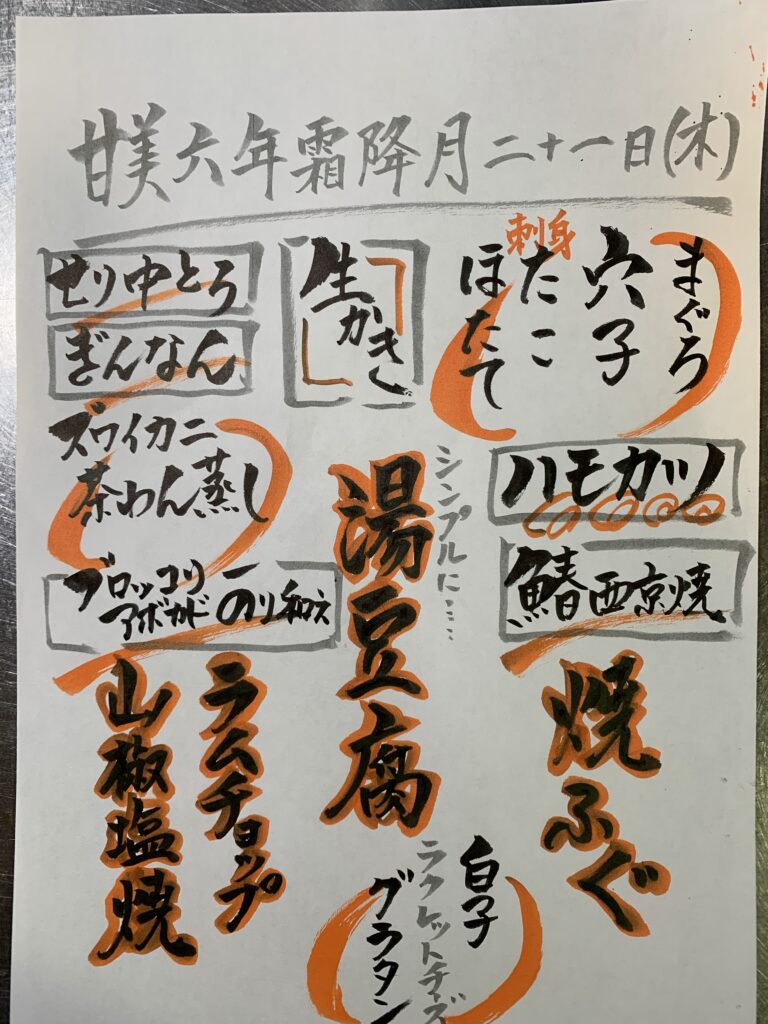 甘美六年霜降月二十一日(木)
刺身
まぐろ
穴子
たこ
ほたて
生かき
せり中とろ
ぎんなん
ズワイカニ
茶わん蒸し
ハモカツ
鰆西京焼
シンプルに……
湯豆腐
ブロッコリー
アボカド
のり和え
焼ふぐ
ラムチョップ
山椒塩焼
白子
ラクレットチーズ
グラタン